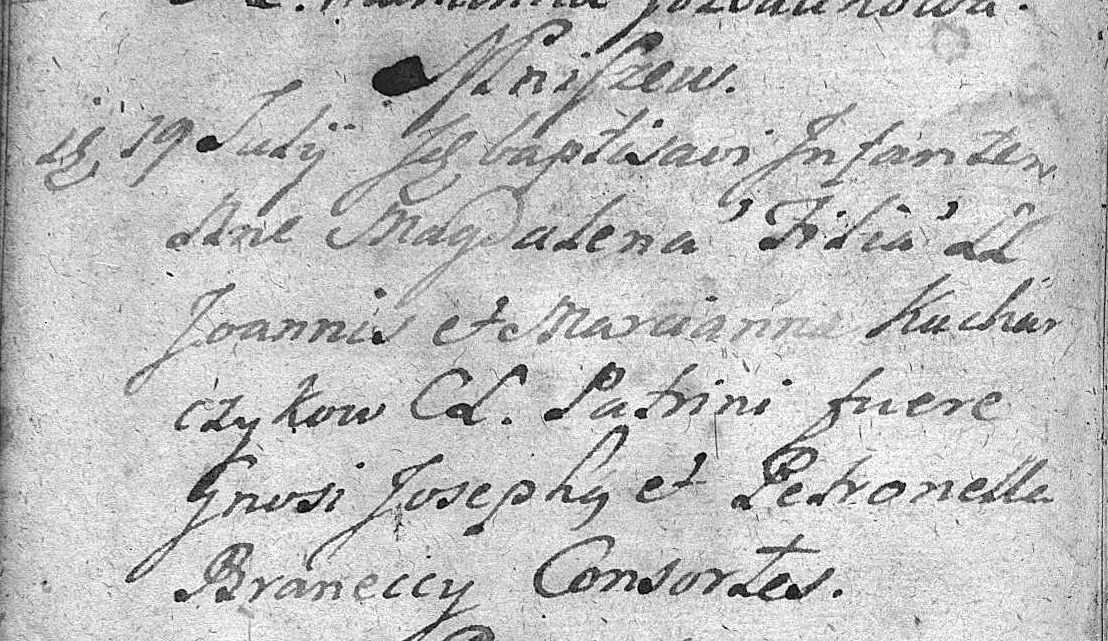 Mniszew.
18, 19 Julij Jd baptisavi Infantem
Nne Magdalena Filia LL
Joannis et Marcianna Kuchar
czykow CL. Patrini fuere
Gnosi Josephq et Petronella
Braneccy Consortes.